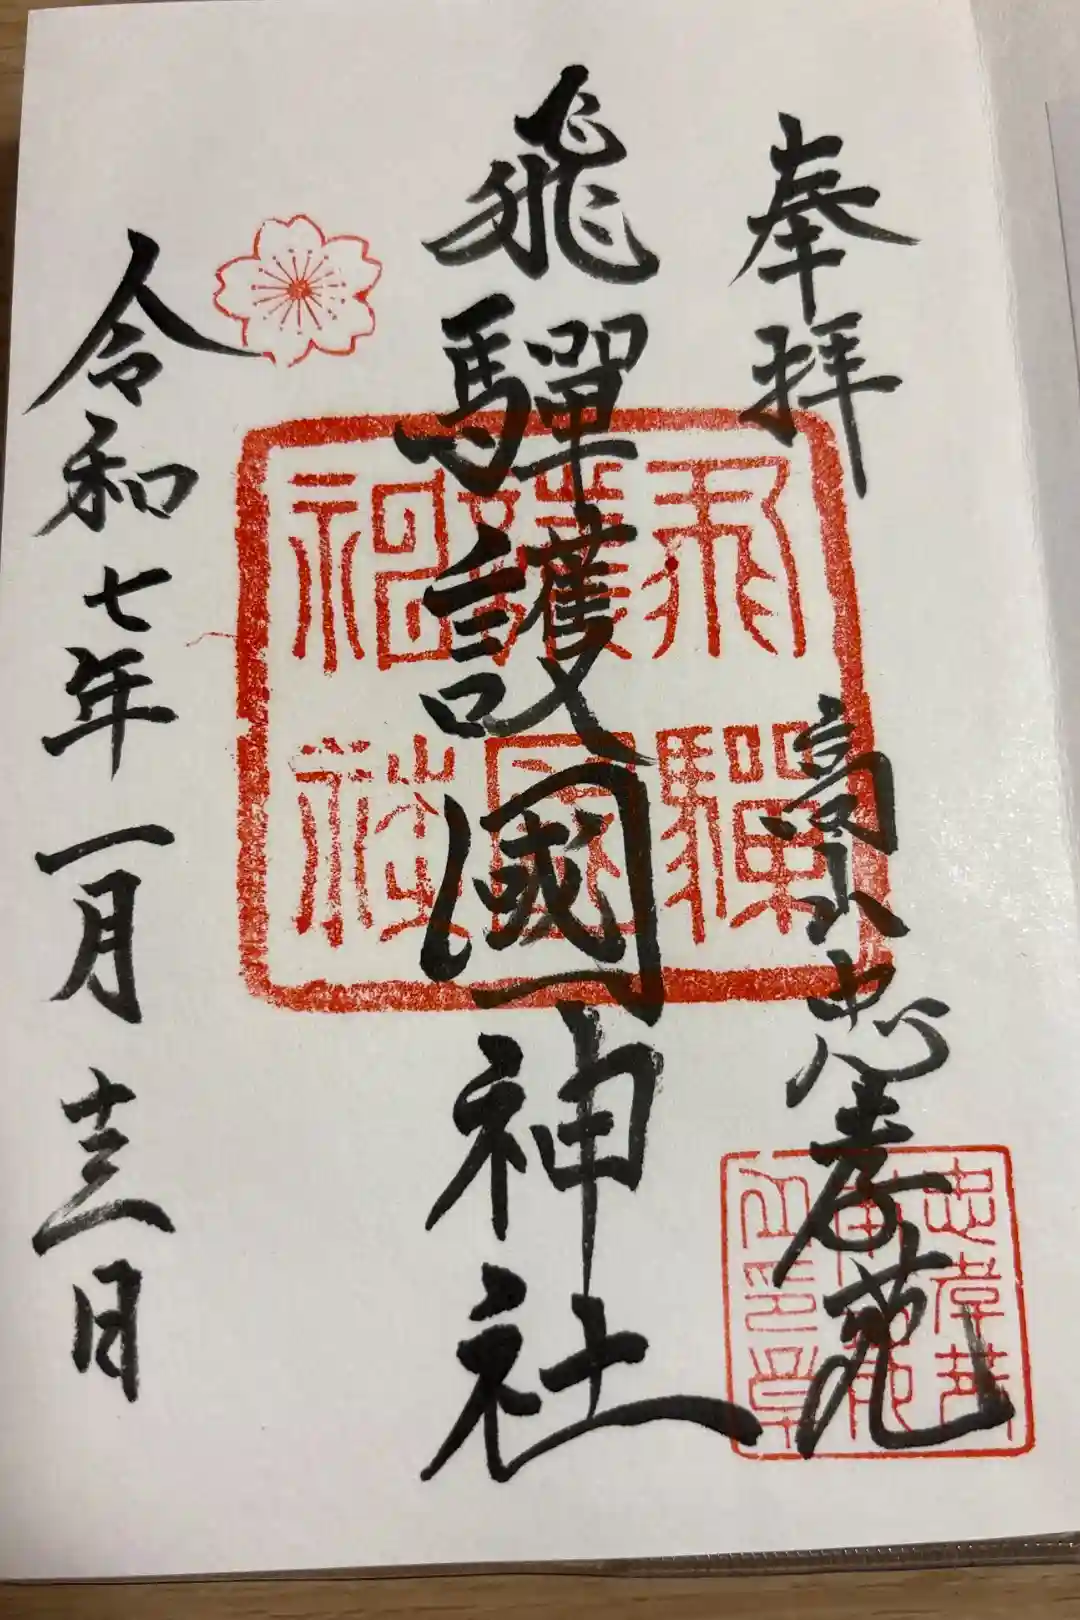 奉拝
高山 忠孝苑
飛騨護國神社
令和七年一月十三日
飛騨
護國
神社